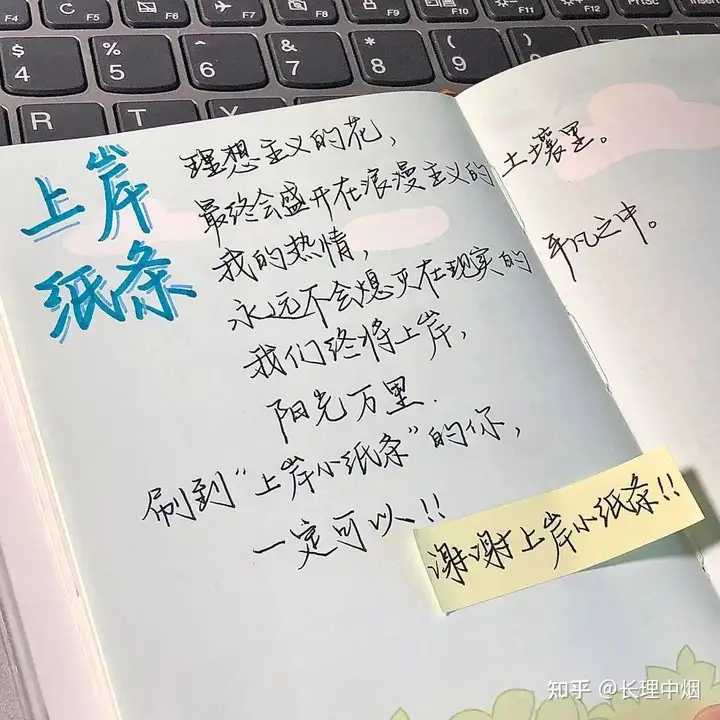 F4
F5
F6
F7
F8
F9
F10
F11
F12
PrtSc
Insert
$
4
%
5
^
6
&
7
*
8
(
9
R
T
上岸
纸条
理想主义的花，
最终会盛开在浪漫主义的土壤里。
我的热情，
永远不会熄灭在现实的平凡之中。
我们终将上岸，
阳光万里.
刷到“上岸小纸条”的你，
一定可以!!
谢谢上岸小纸条!!
知乎 @长理中烟